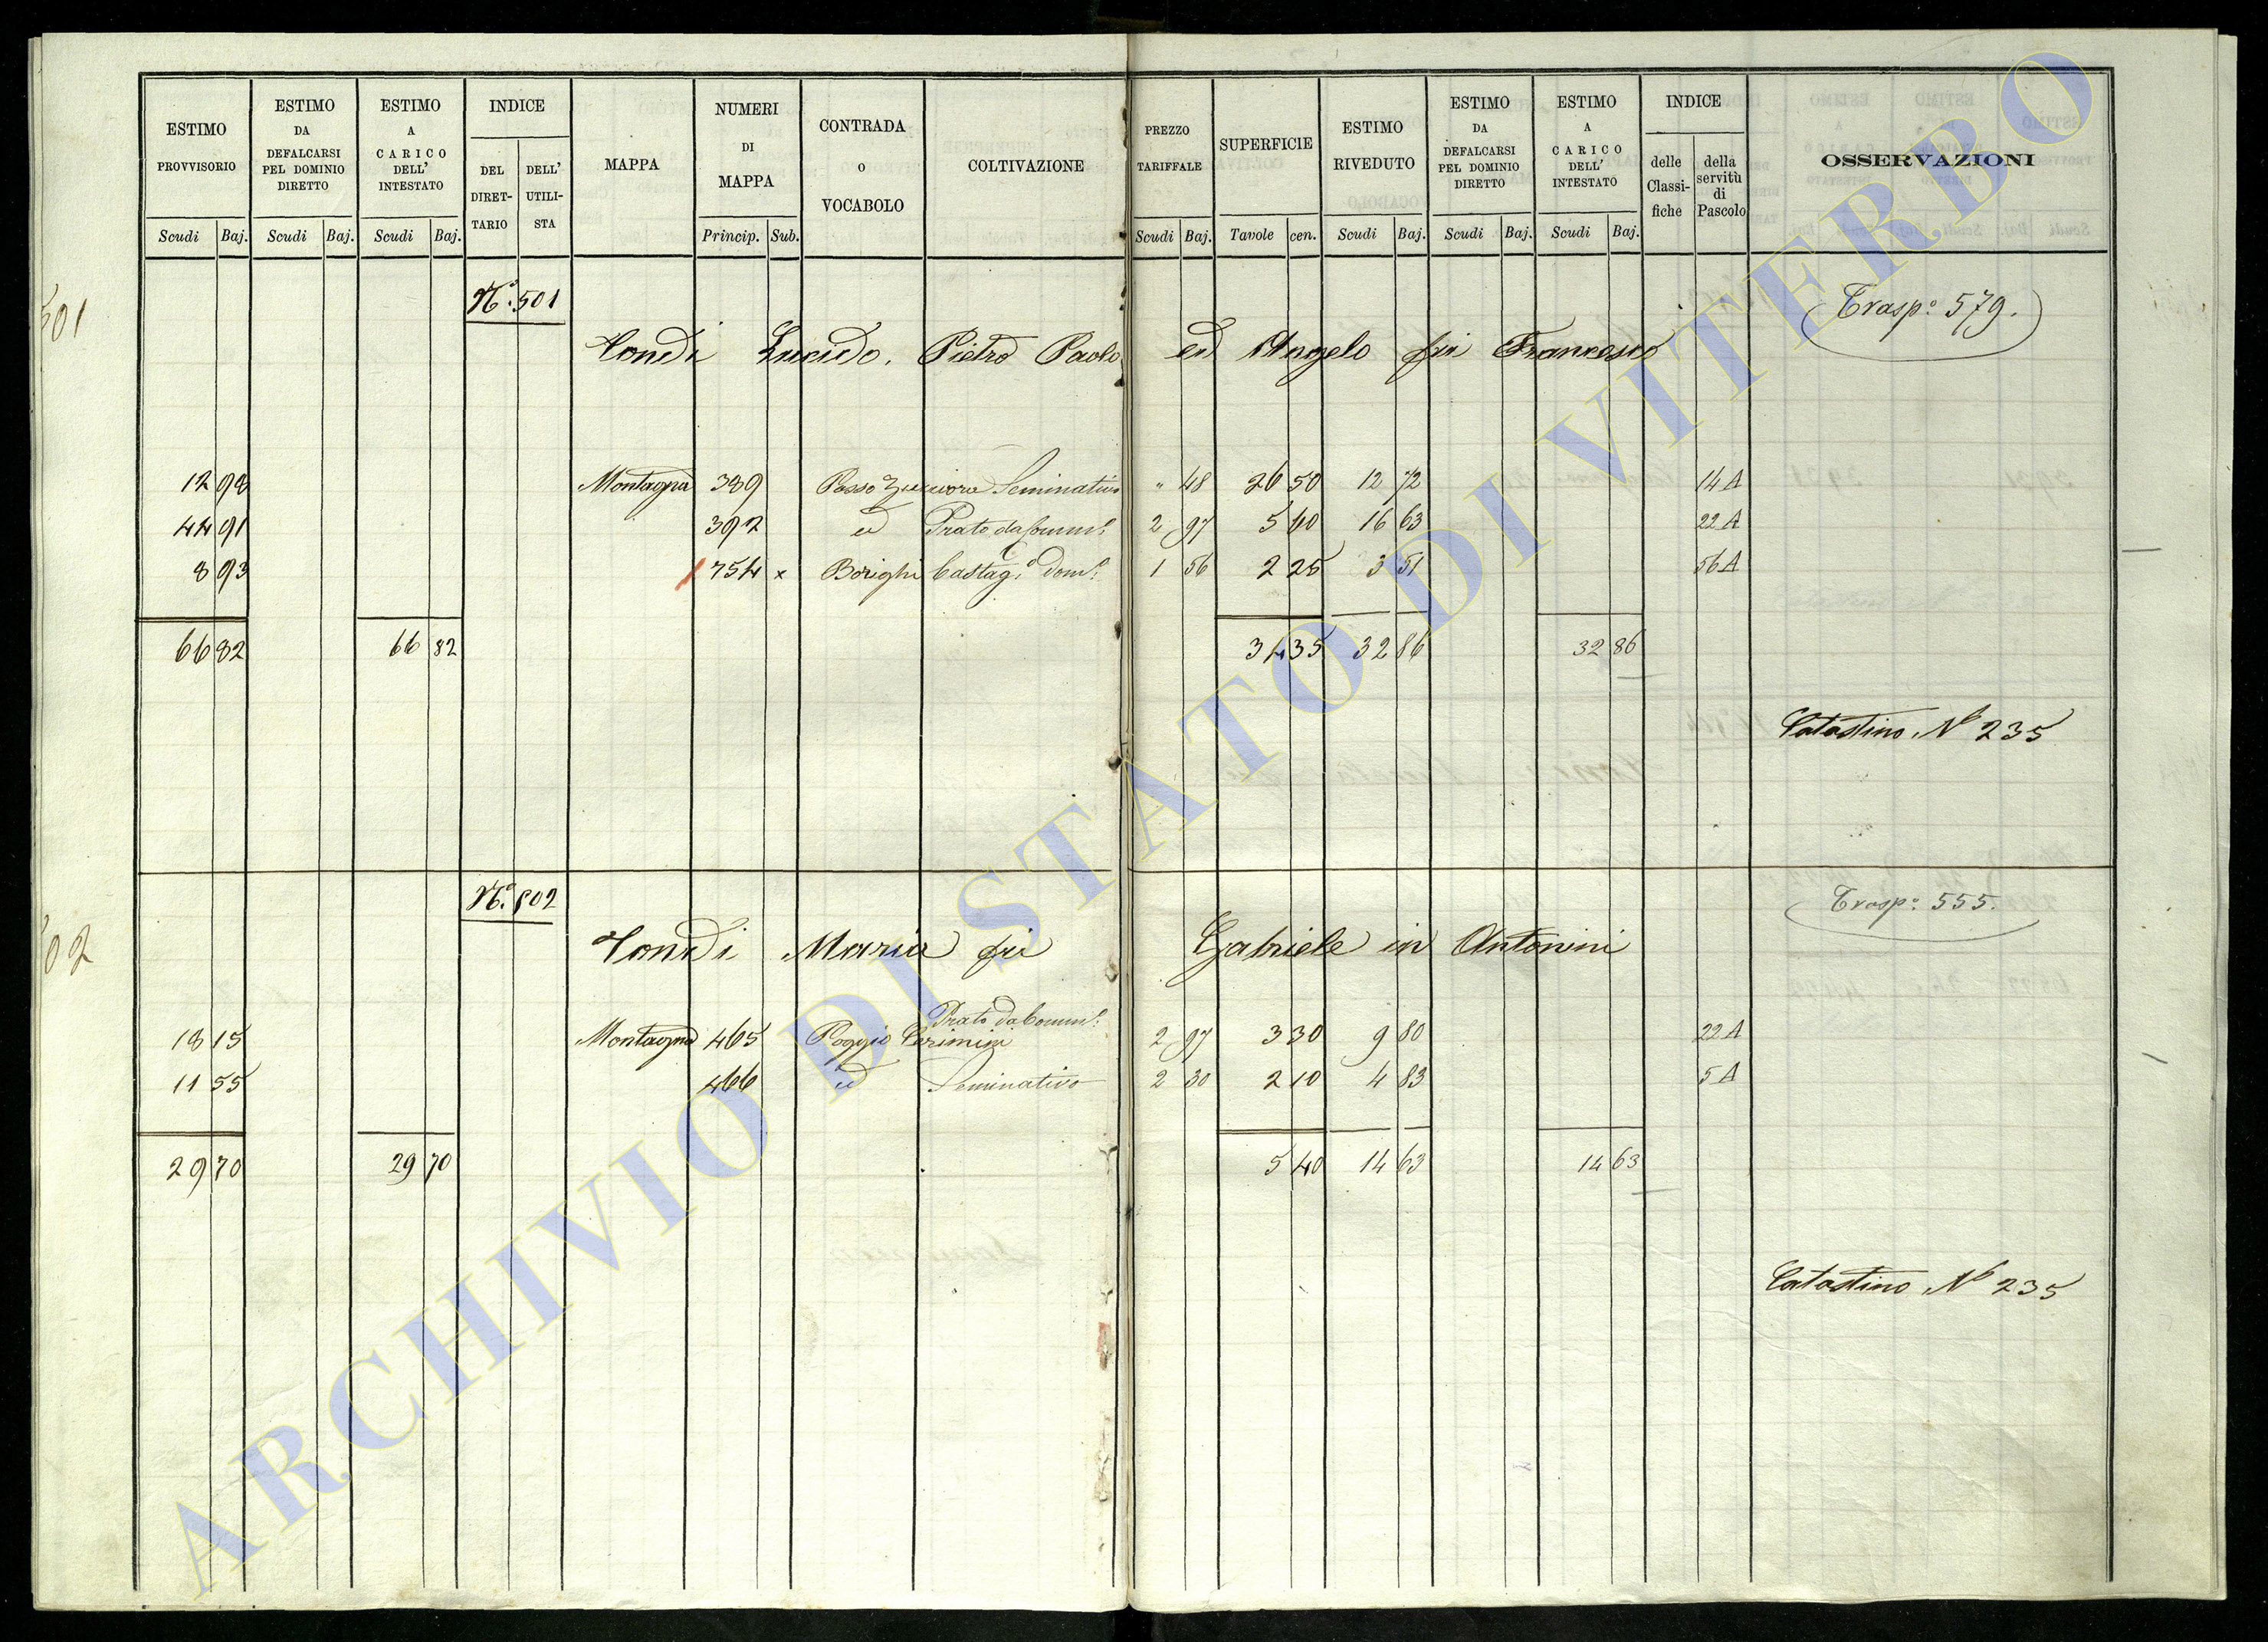 ESTIMO PROVVISORIO
ESTIMO DA DEFALCARSI PEL DOMINIO DIRETTO
ESTIMO A CARICO DELL' INTESTATO
INDICE
DEL DIRET-TARIO
DELL' UTILI-STA
MAPPA
NUMERI DI MAPPA
CONTRADA O VOCABOLO
COLTIVAZIONE
PREZZO TARIFFALE
SUPERFICIE
ESTIMO RIVEDUTO
ESTIMO DA DEFALCARSI PEL DOMINIO DIRETTO
ESTIMO A CARICO DELL' INTESTATO
INDICE
delle Classi-fiche
della servitù di Pascolo
OSSERVAZIONI
Scudi Baj. Scudi Baj. Scudi Baj. Princip. Sub. Scudi Baj. Tavole cen. Scudi Baj. Scudi Baj. Scudi Baj.
501
N.º 501
Trasp.º 579.
Tondi Lucido, Pietro Paolo ed Angelo fu Francesco
12 98 Montagna 389 Seminativo " 48 26 50 12 72 14 A
44 91 392 id Prato da Comm.e 2 97 5 60 16 63 22 A
8 93 1754 x Borighi Castag.o dom.o 1 56 2 25 3 51 56 A
66 82 66 82 34 35 32 86 32 86
Catastino Nº 235
502
N.º 502
Trasp.º 555.
Tondi Maria fu Gabriele in Antonini
18 15 Montagna 465 Poggio Cerimini Prato da Comm.e 2 97 3 30 9 80 22 A
11 55 466 id Seminativo 2 30 2 10 4 83 5 A
29 70 29 70 5 40 14 63 14 63
Catastino Nº 235
ARCHIVIO DI STATO DI VITERBO